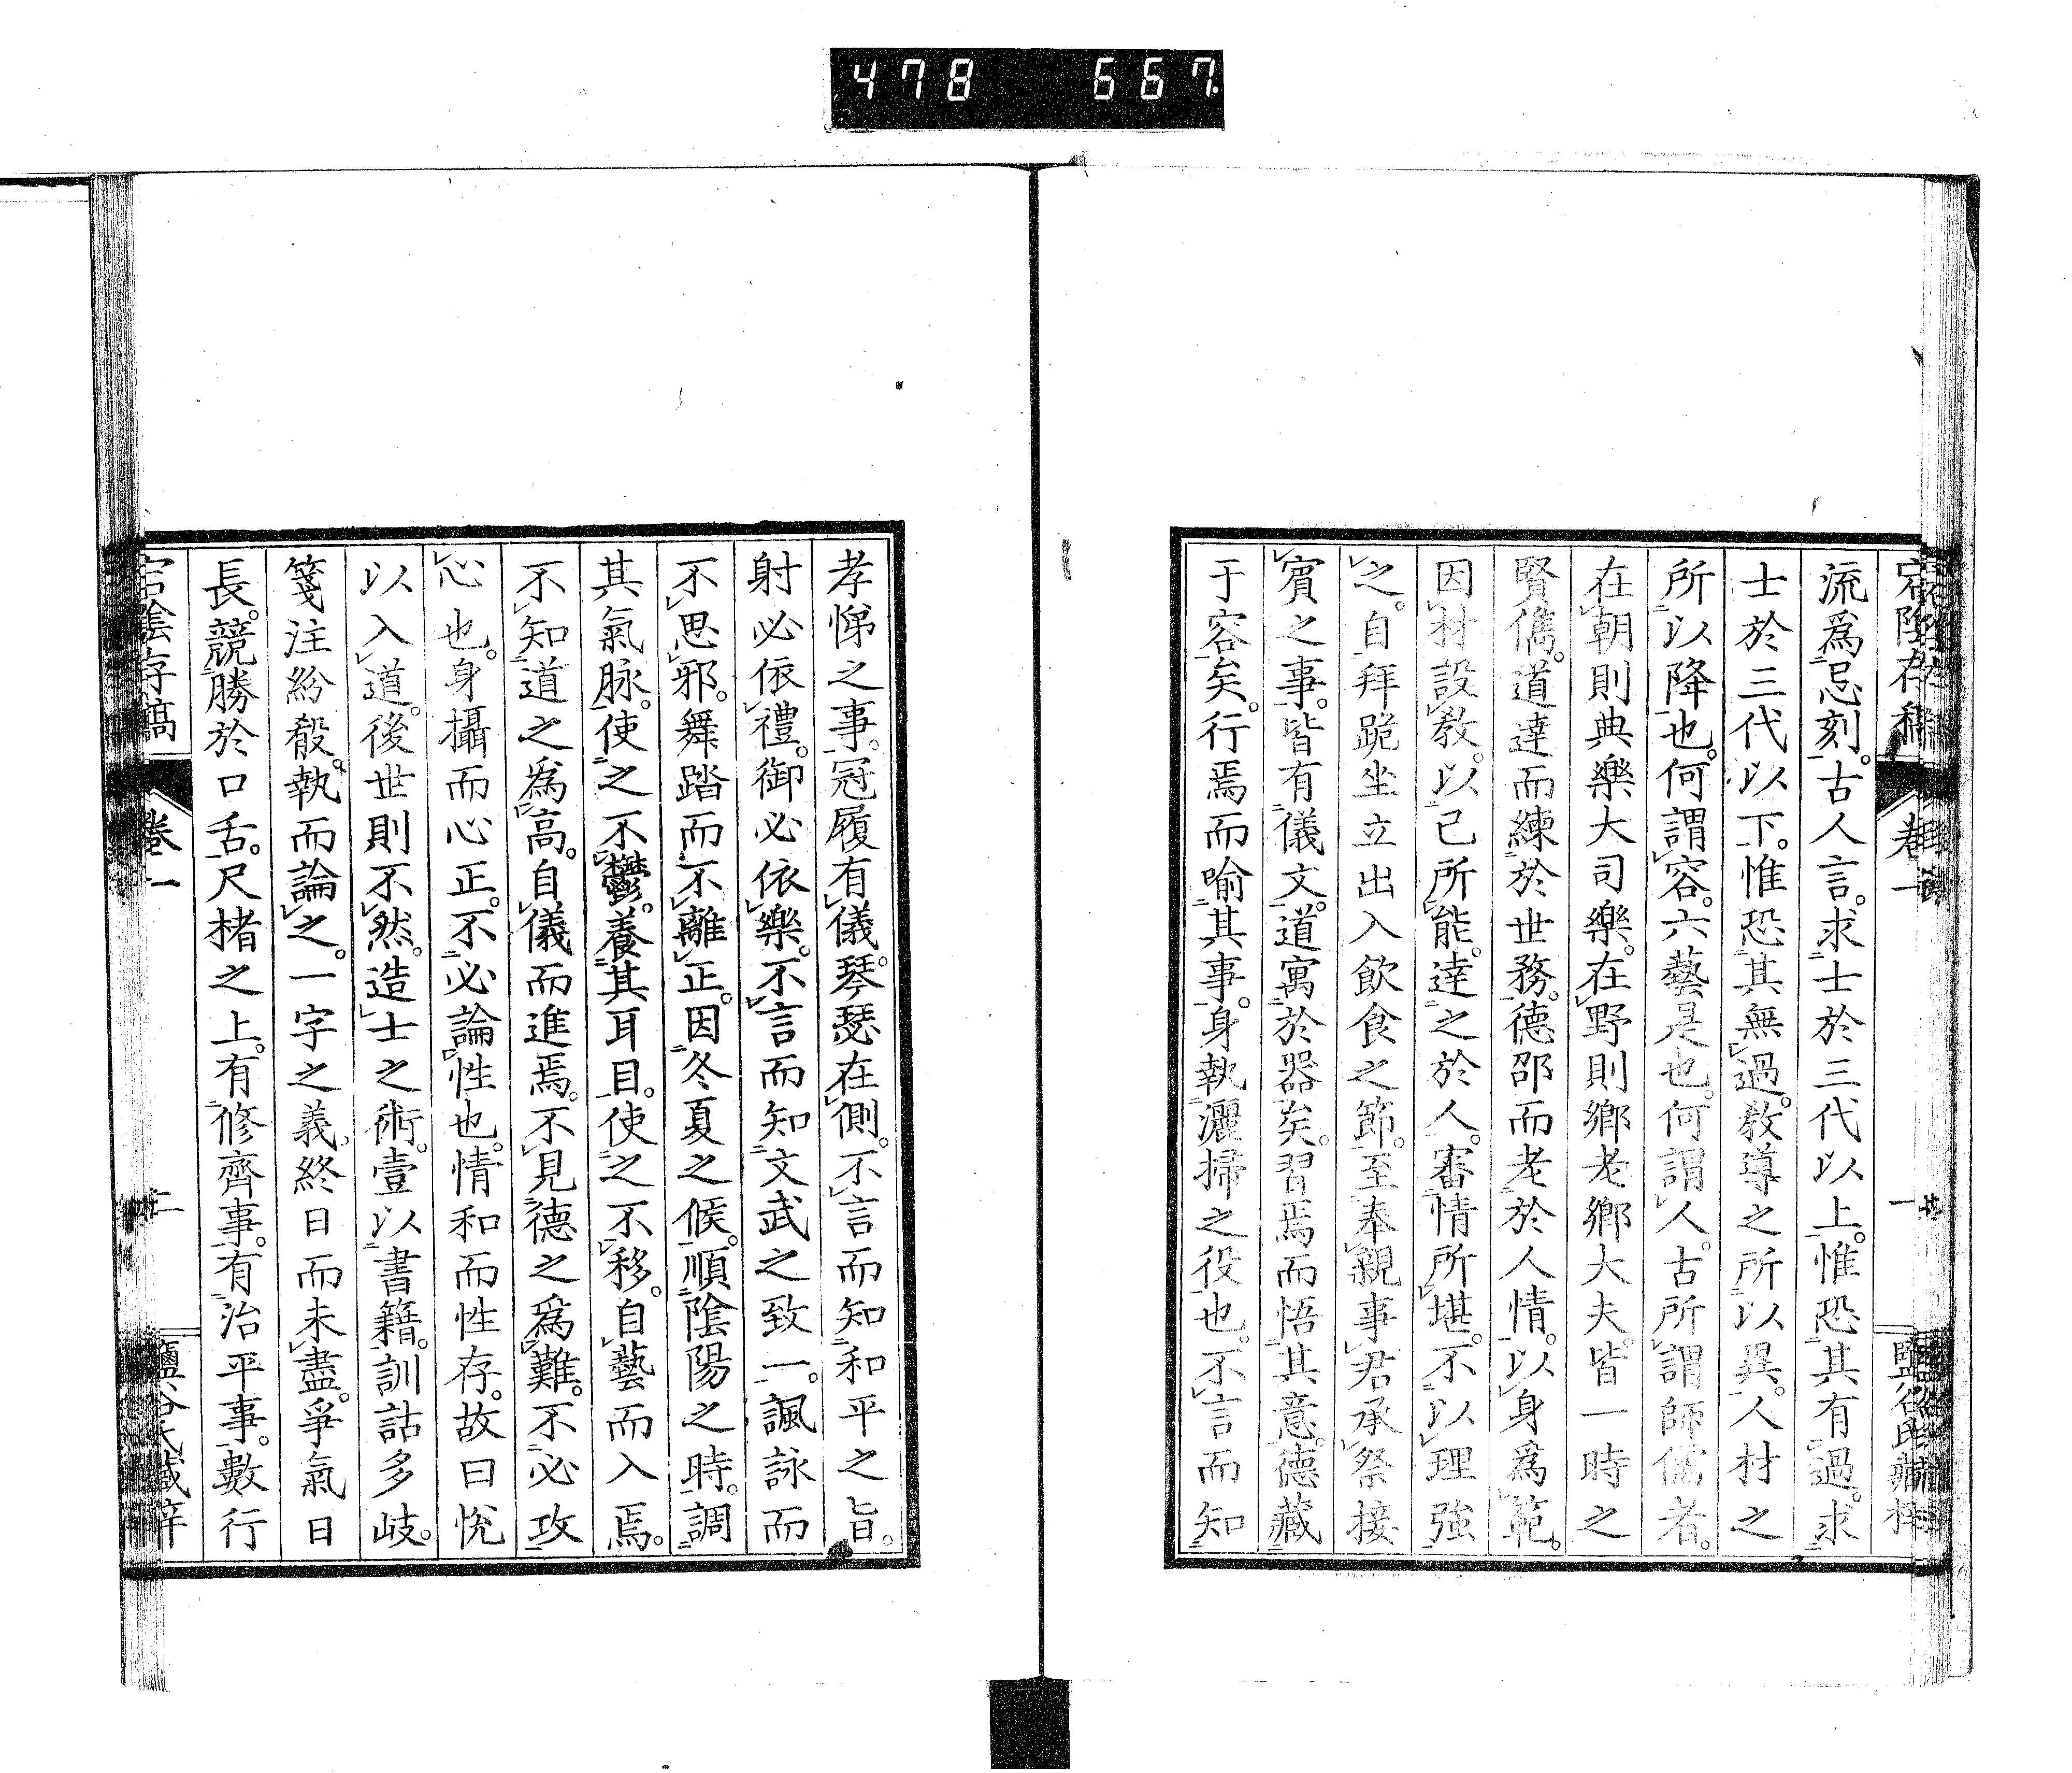 478 667
宕陰存稿 卷一 一 鹽谷氏藏梓
流爲忌刻。古人言。求士於三代以上。惟恐其有過。求
士於三代以下。惟恐其無過。教導之所以異。人材之
所以降也。何謂容。六藝是也。何謂人。古所謂師儒者。
在朝則典樂大司樂。在野則鄉老鄉大夫。皆一時之
賢儁。道達而練於世務。德邵而老於人情。以身爲範。
因材設教。以己所能。達之於人。審情所堪。不以理強
之。自拜跪坐立出入飲食之節。至奉親事君承祭接
賓之事。皆有儀文。道寓於器矣。習焉而悟其意。德藏
于容矣。行焉而喻其事。身執灑掃之役也。不言而知
孝悌之事。冠履有儀。琴瑟在側。不言而知和平之旨。
射必依禮。御必依樂。不言而知文武之致一。諷詠而
不思邪。舞踏而不離正。因冬夏之候。順陰陽之時。調
其氣脉。使之不鬱。養其耳目。使之不移。自藝而入焉。
不知道之爲高。自儀而進焉。不見德之爲難。不必攻
心也。身攝而心正。不必論性也。情和而性存。故曰悅
以入道。後世則不然。造士之術。壹以書籍。訓詁多岐。
箋注紛殽。執而論之。一字之義、終日而未盡。爭氣日
長。競勝於口舌。尺楮之上。有修齊事。有治平事。數行
宕陰存稿 卷一 二 鹽谷氏藏梓